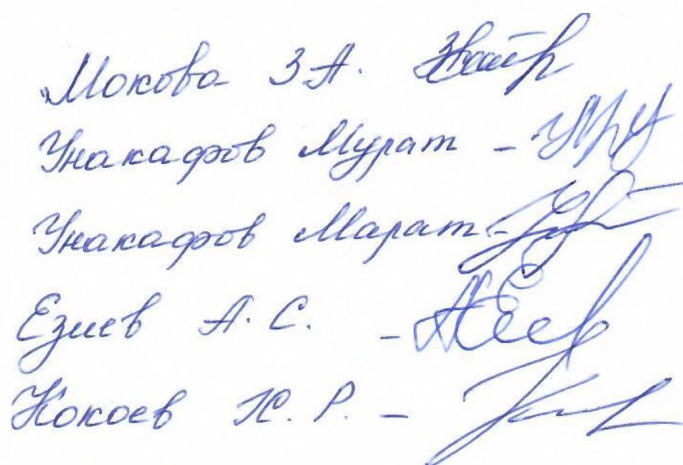 Мокова З.А.
Унакафов Мурат -
Унакафов Марат -
Езиев А.С. -
Кокоев К.Р. -